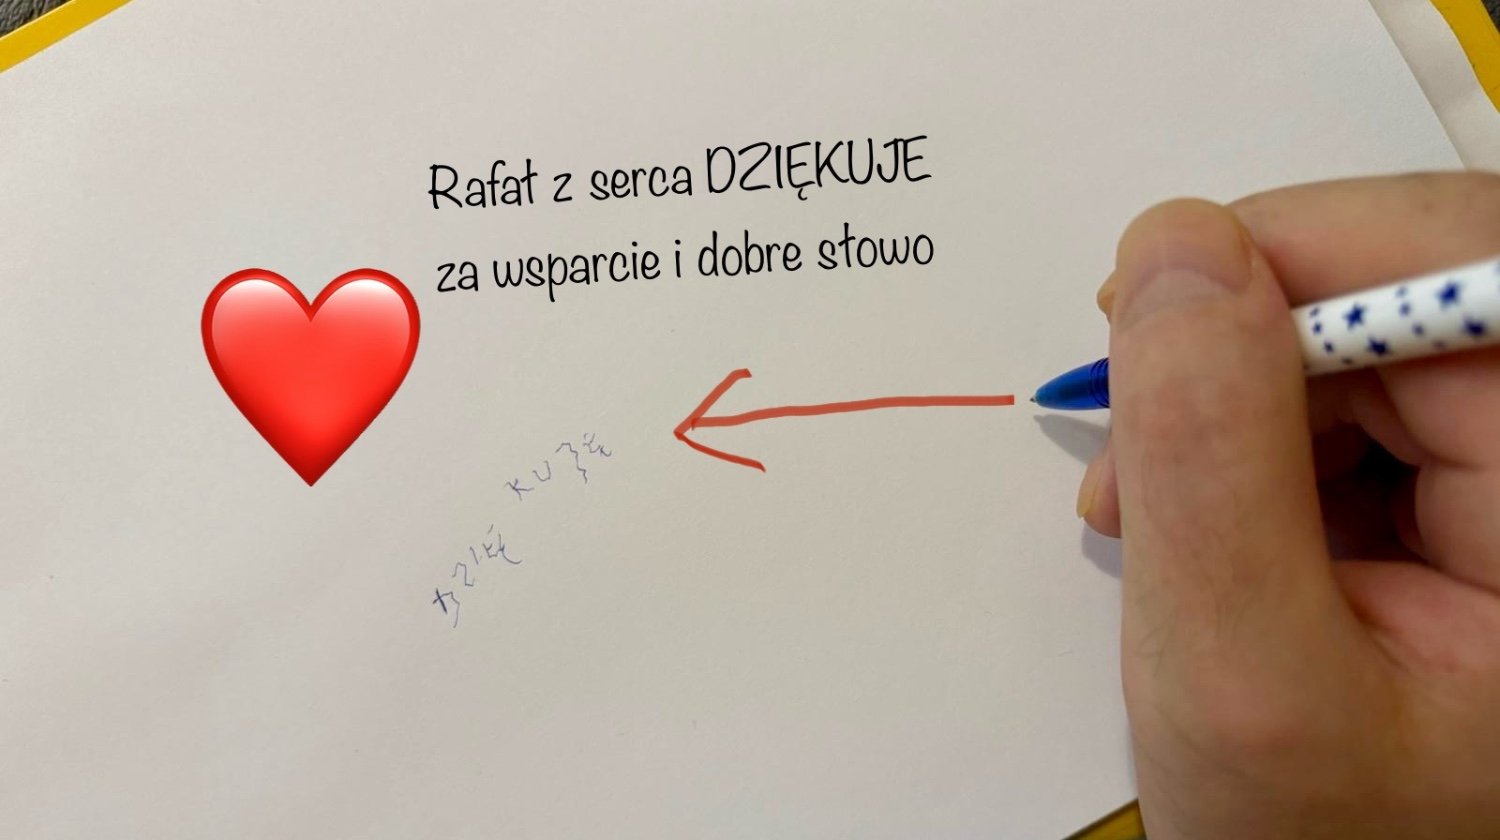 Rafał z serca DZIĘKUJE
za wsparcie i dobre słowo